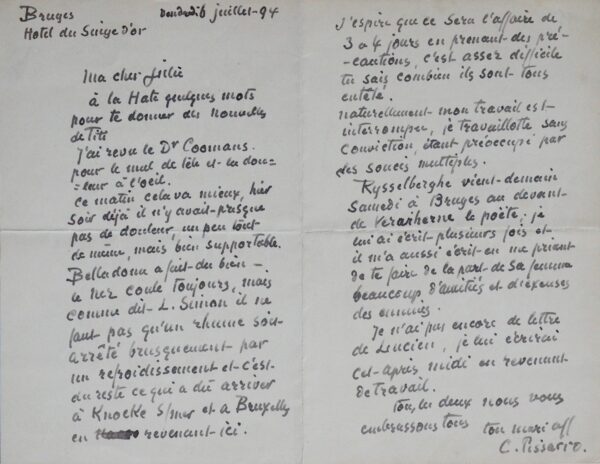 Bruges
Hotel du Singe d'or
Vendredi 6 juillet-94
Ma cher Julie
à la Hate quelques mots
pour te donner des nouvelles
de Titi
J'ai revu le Dr Coomans.
pour le mal de tête et la dou-
leur à l'oeil.
ce matin cela va mieux, hier
soir déjà il n'y avait presque
pas de douleur, un peu tout
de même, mais bien supportable.
Belladona a fait du bien -
le nez coule toujours, mais
comme dit L. Simon il ne
faut pas qu'un rhume soit
arrêté brusquement par
un refroidissement et c'est
du reste ce qui a dû arriver
à Knocke s/mer et a Bruxelles
en revenant ici.
J'espère que ce sera l'affaire de
3 a 4 jours en prenant des pré-
cautions, c'est assez difficile
tu sais combien ils sont tous
entêté.
naturellement mon travail est
interrompu, je travaillotte sans
conviction, étant préoccupé par
des soucis multiples.
Rysselberghe vient demain
Samedi à Bruges au devant
de Verarherne le poëte; je
lui ai écrit plusieurs fois et
il m'a aussi écrit en me priant
de te faire de la part de sa femme
beaucoup d'amitiés et d'excuses
des ennuis.
Je n'ai pas encore de lettre
de Lucien, je lui écrirai
cet après midi en revenant
de travail.
tous les deux nous vous
embrassons tous
ton mari aff
C. Pissarro.